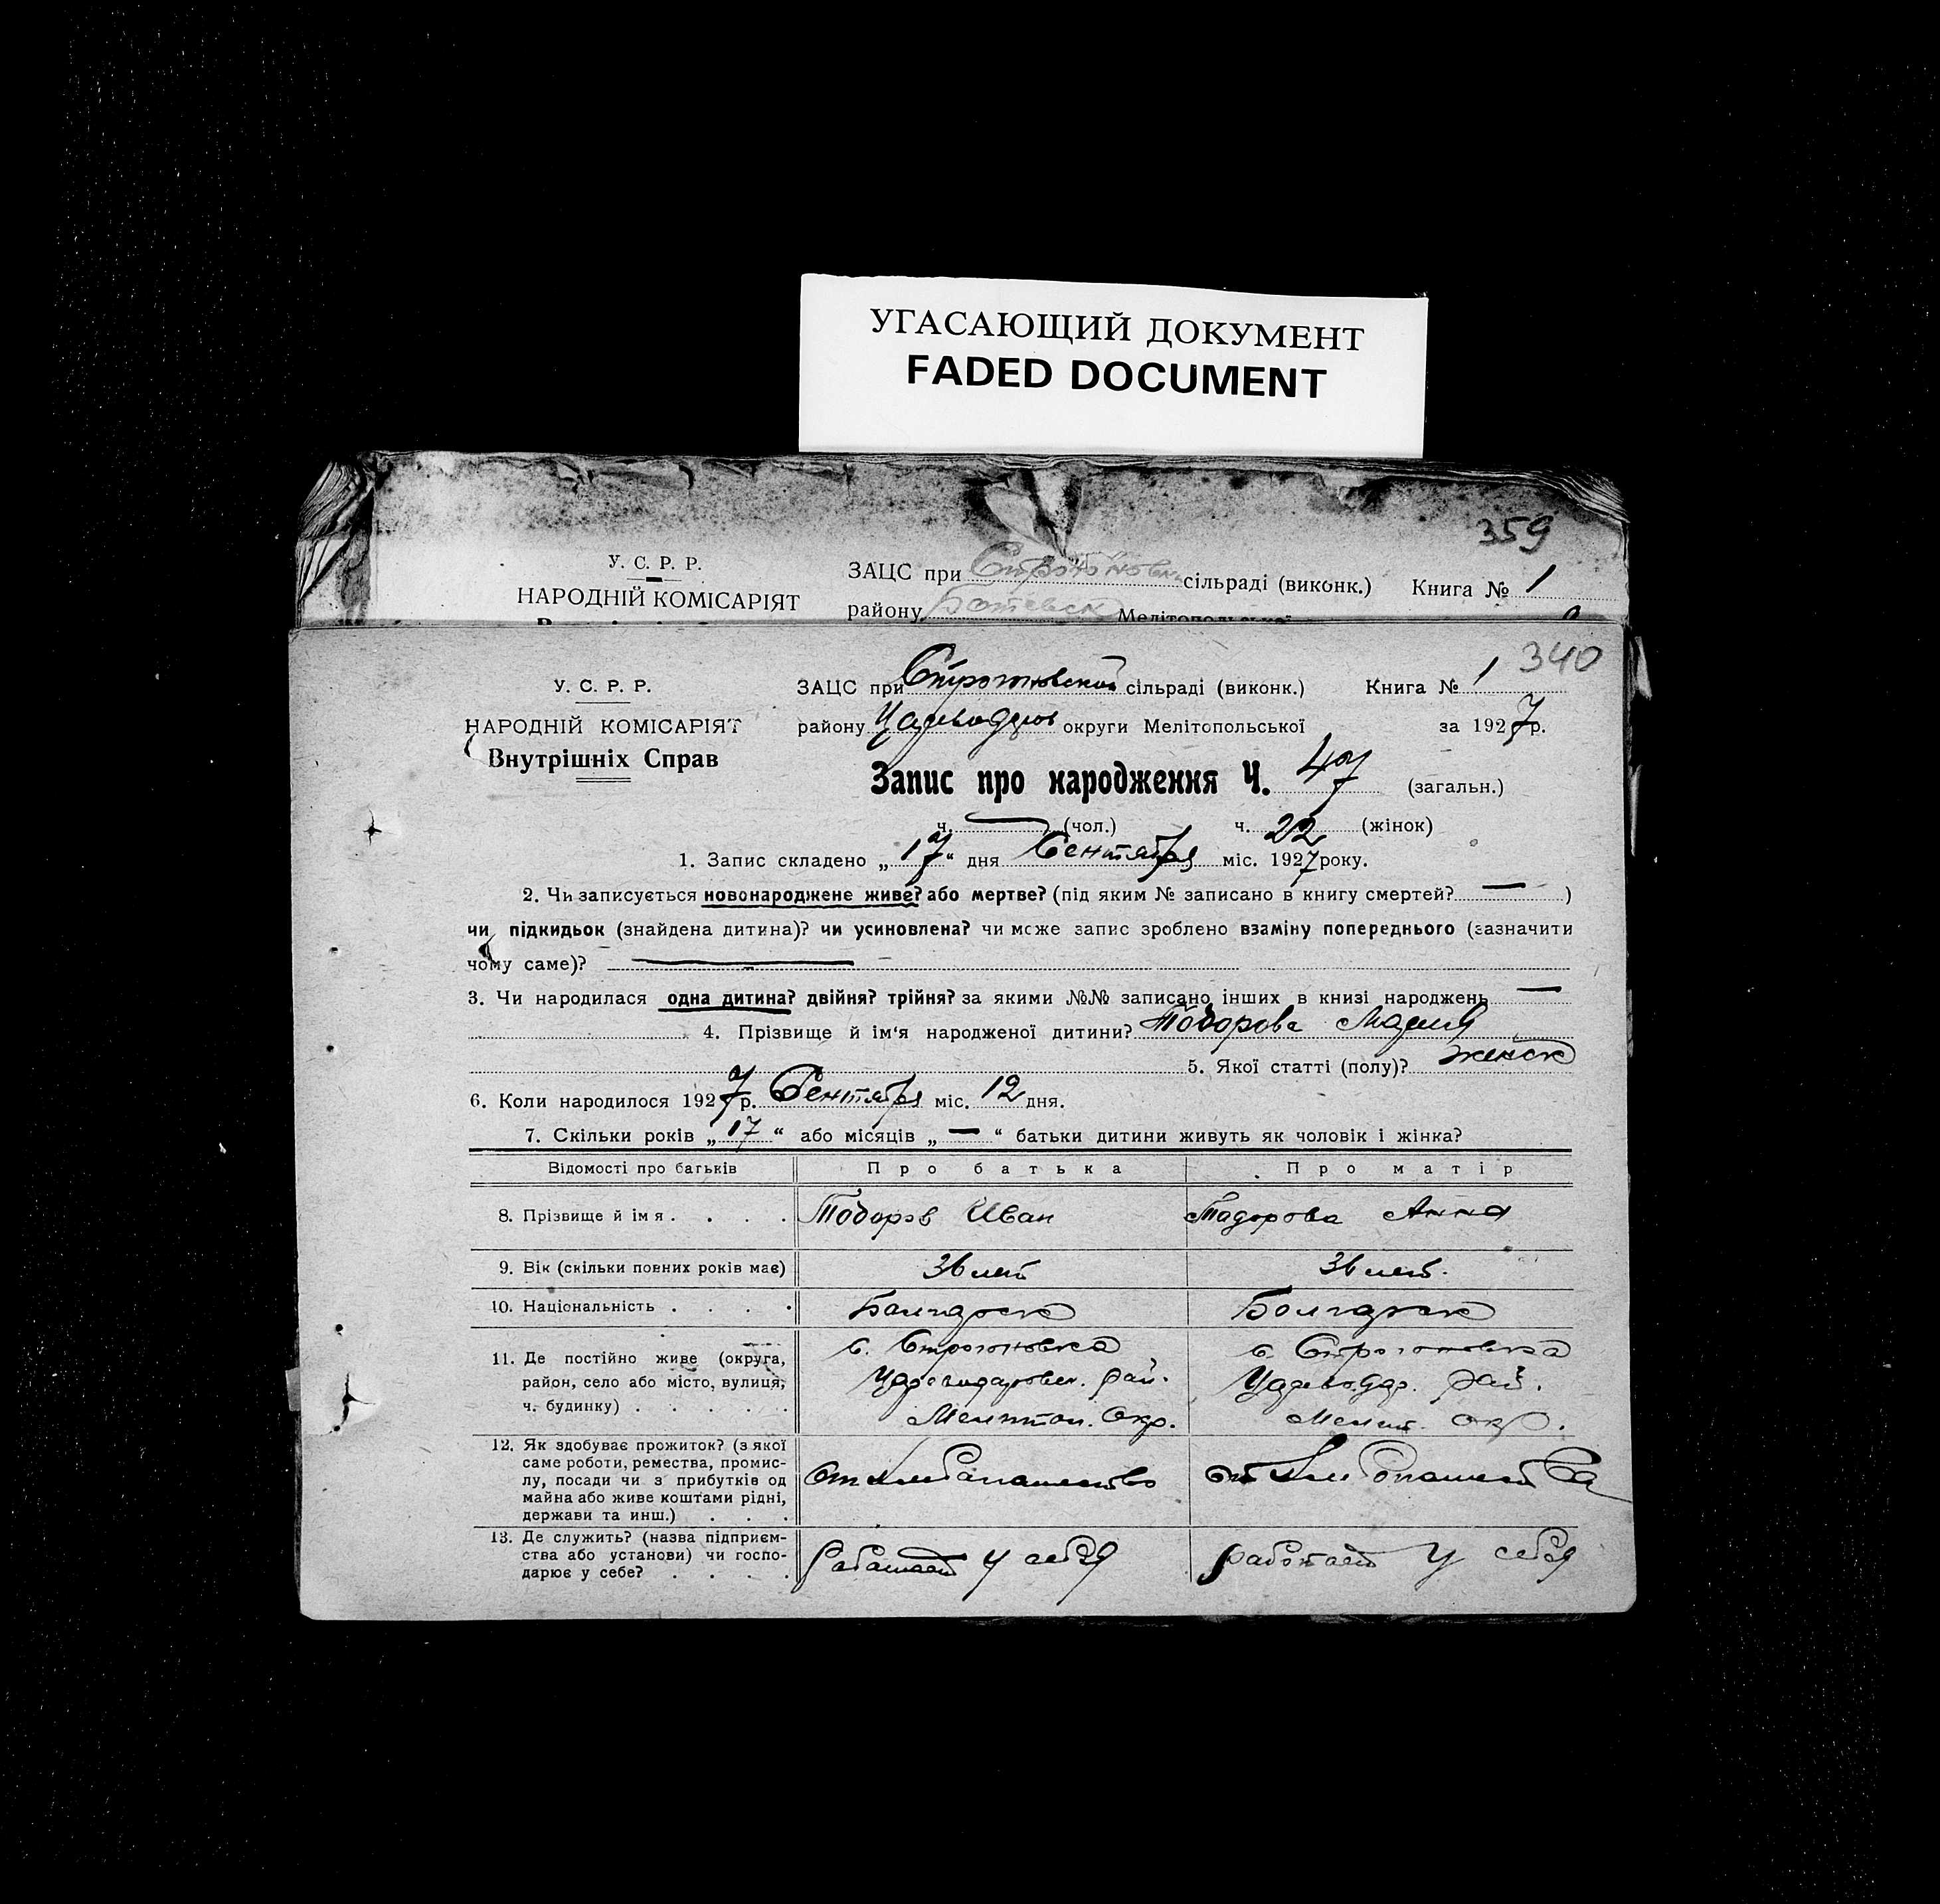 УГАСАЮЩИЙ ДОКУМЕНТ
FADED DOCUMENT
359
У. С. Р. Р.
НАРОДНІЙ КОМІСАРІЯТ
ЗАЦС при сільраді (виконк.) Книга № 1
району Ботевск Мелітопольської
340
У. С. Р. Р.
НАРОДНІЙ КОМІСАРІЯТ
Внутрішніх Справ
ЗАЦС при Строгоновской сільраді (виконк.) Книга № 1
району Цареводаров округи Мелітопольської за 1927 р.
Запис про народження Ч. 47 (загальн.)
ч. — (чол.) ч. 22 (жінок)
1. Запис складено „17“ дня Сентября міс. 1927 року.
2. Чи записується новонароджене живе? або мертве? (під яким № записано в книгу смертей? — )
чи підкидьок (знайдена дитина)? чи усиновлена? чи може запис зроблено взаміну попереднього (зазначити
чому саме)? —
3. Чи народилася одна дитина? двійня? трійня? за якими №№ записано інших в книзі народжень —
4. Прізвище й ім'я народженої дитини? Тодорова Мария
5. Якої статті (полу)? женск
6. Коли народилося 1927 р. Сентября міс. 12 дня.
7. Скільки років „17“ або місяців „—“ батьки дитини живуть як чоловік і жінка?
Відомості про батьків Про батька Про матір
8. Прізвище й імя . . . . Тодоров Иван Тадорова Анна
9. Вік (скільки повних років має) 36 лет 36 лет.
10. Національність . . . . Болгарск Болгарск
11. Де постійно живе (округа, район, село або місто, вулиця, ч. будинку) . . . . .
с. Строгоновка
Царегодаровск. рай.
Мелитоп. Окр.
с Строгоновка
Цареводар. рай.
Мелит. окр.
12. Як здобуває прожиток? (з якої
саме роботи, ремества, промис-
лу, посади чи з прибутків од
майна або живе коштами рідні,
держави та инш.) . . .
От хлебапашество
от хлебопашества
13. Де служить? (назва підприєм-
ства або установи) чи госпо-
дарює у себе? . . . .
Работает у себя
работает у себя